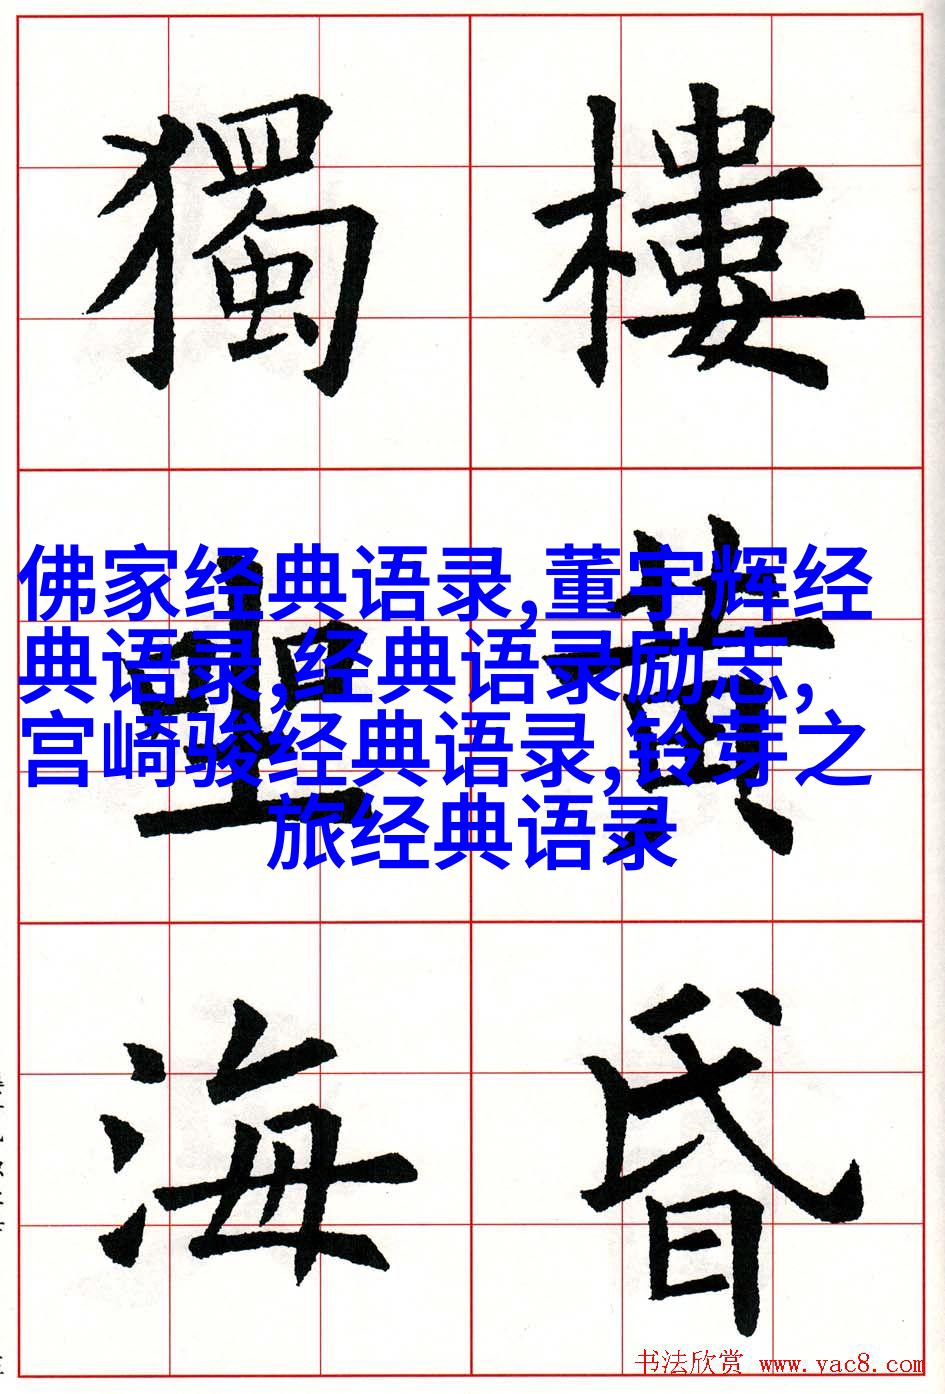 樓黃昏
獨海
佛家经典语录,董宇辉经
典语录,经典语录励志,
宫崎骏经典语录,铃芽之
旅经典语录
书法欣赏 www.yac8.com